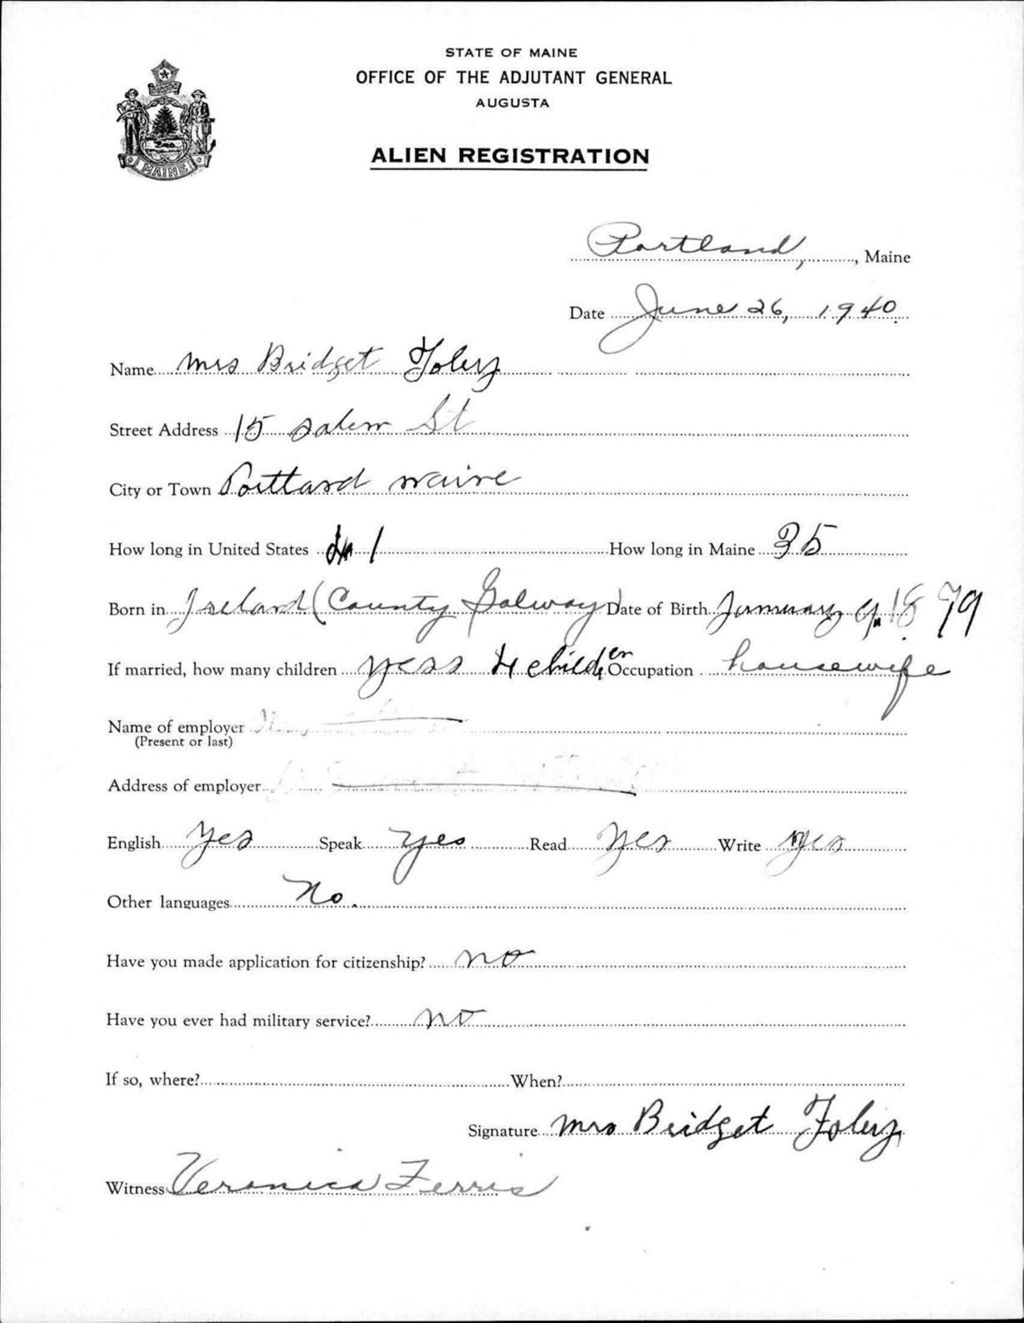 STATE OF MAINE
OFFICE OF THE ADJUTANT GENERAL
AUGUSTA
ALIEN REGISTRATION
MAINE
Portland, Maine
Date June 26, 1940.
Name Mrs Bridget Foley
Street Address 15 Salem St
City or Town Portland Maine
How long in United States 41 How long in Maine 35
Born in Ireland (County Galway) Date of Birth January 9, 1879
If married, how many children yess 4 children Occupation housewife
Name of employer
(Present or last)
Address of employer
English Yes Speak Yes Read Yes Write yes
Other languages No.
Have you made application for citizenship? no
Have you ever had military service? no
If so, where? When?
Signature Mrs Bridget Foley
Witness Veronica Ferris